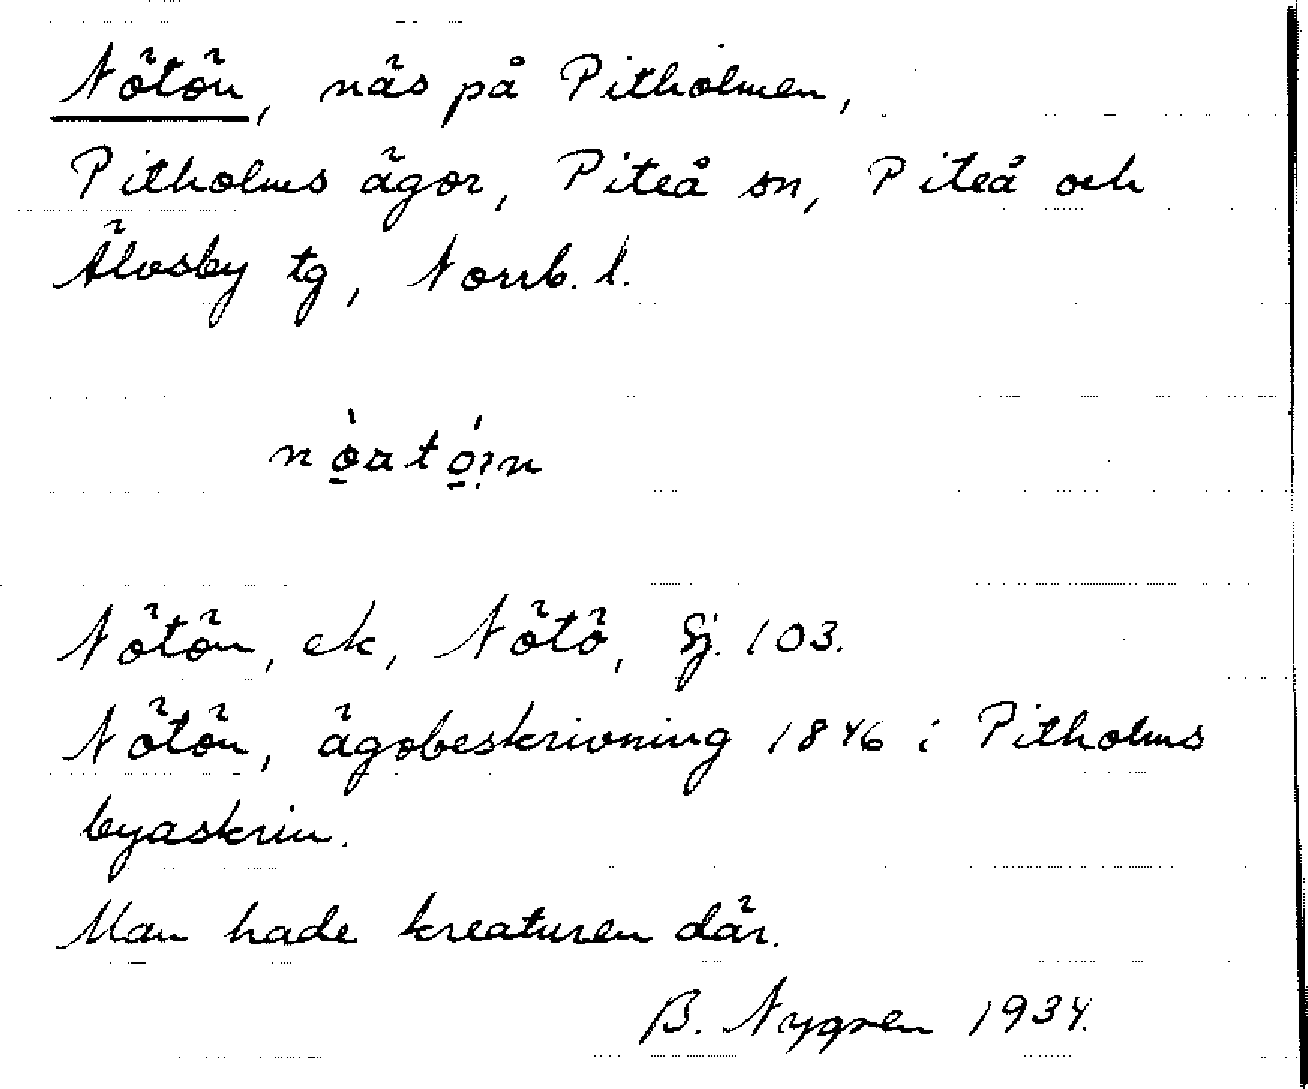 Nötön, näs på Pitholmen,
Pitholms ägor, Piteå sn, Piteå och
Älvsby tg, Norrb. l.
Nötön, ek, Nötö, Gj. 103.
Nötön, ägobeskrivning 1846 i Pitholms
byaskrin.
Man hade kreaturen där.
B. Nygren 1934.